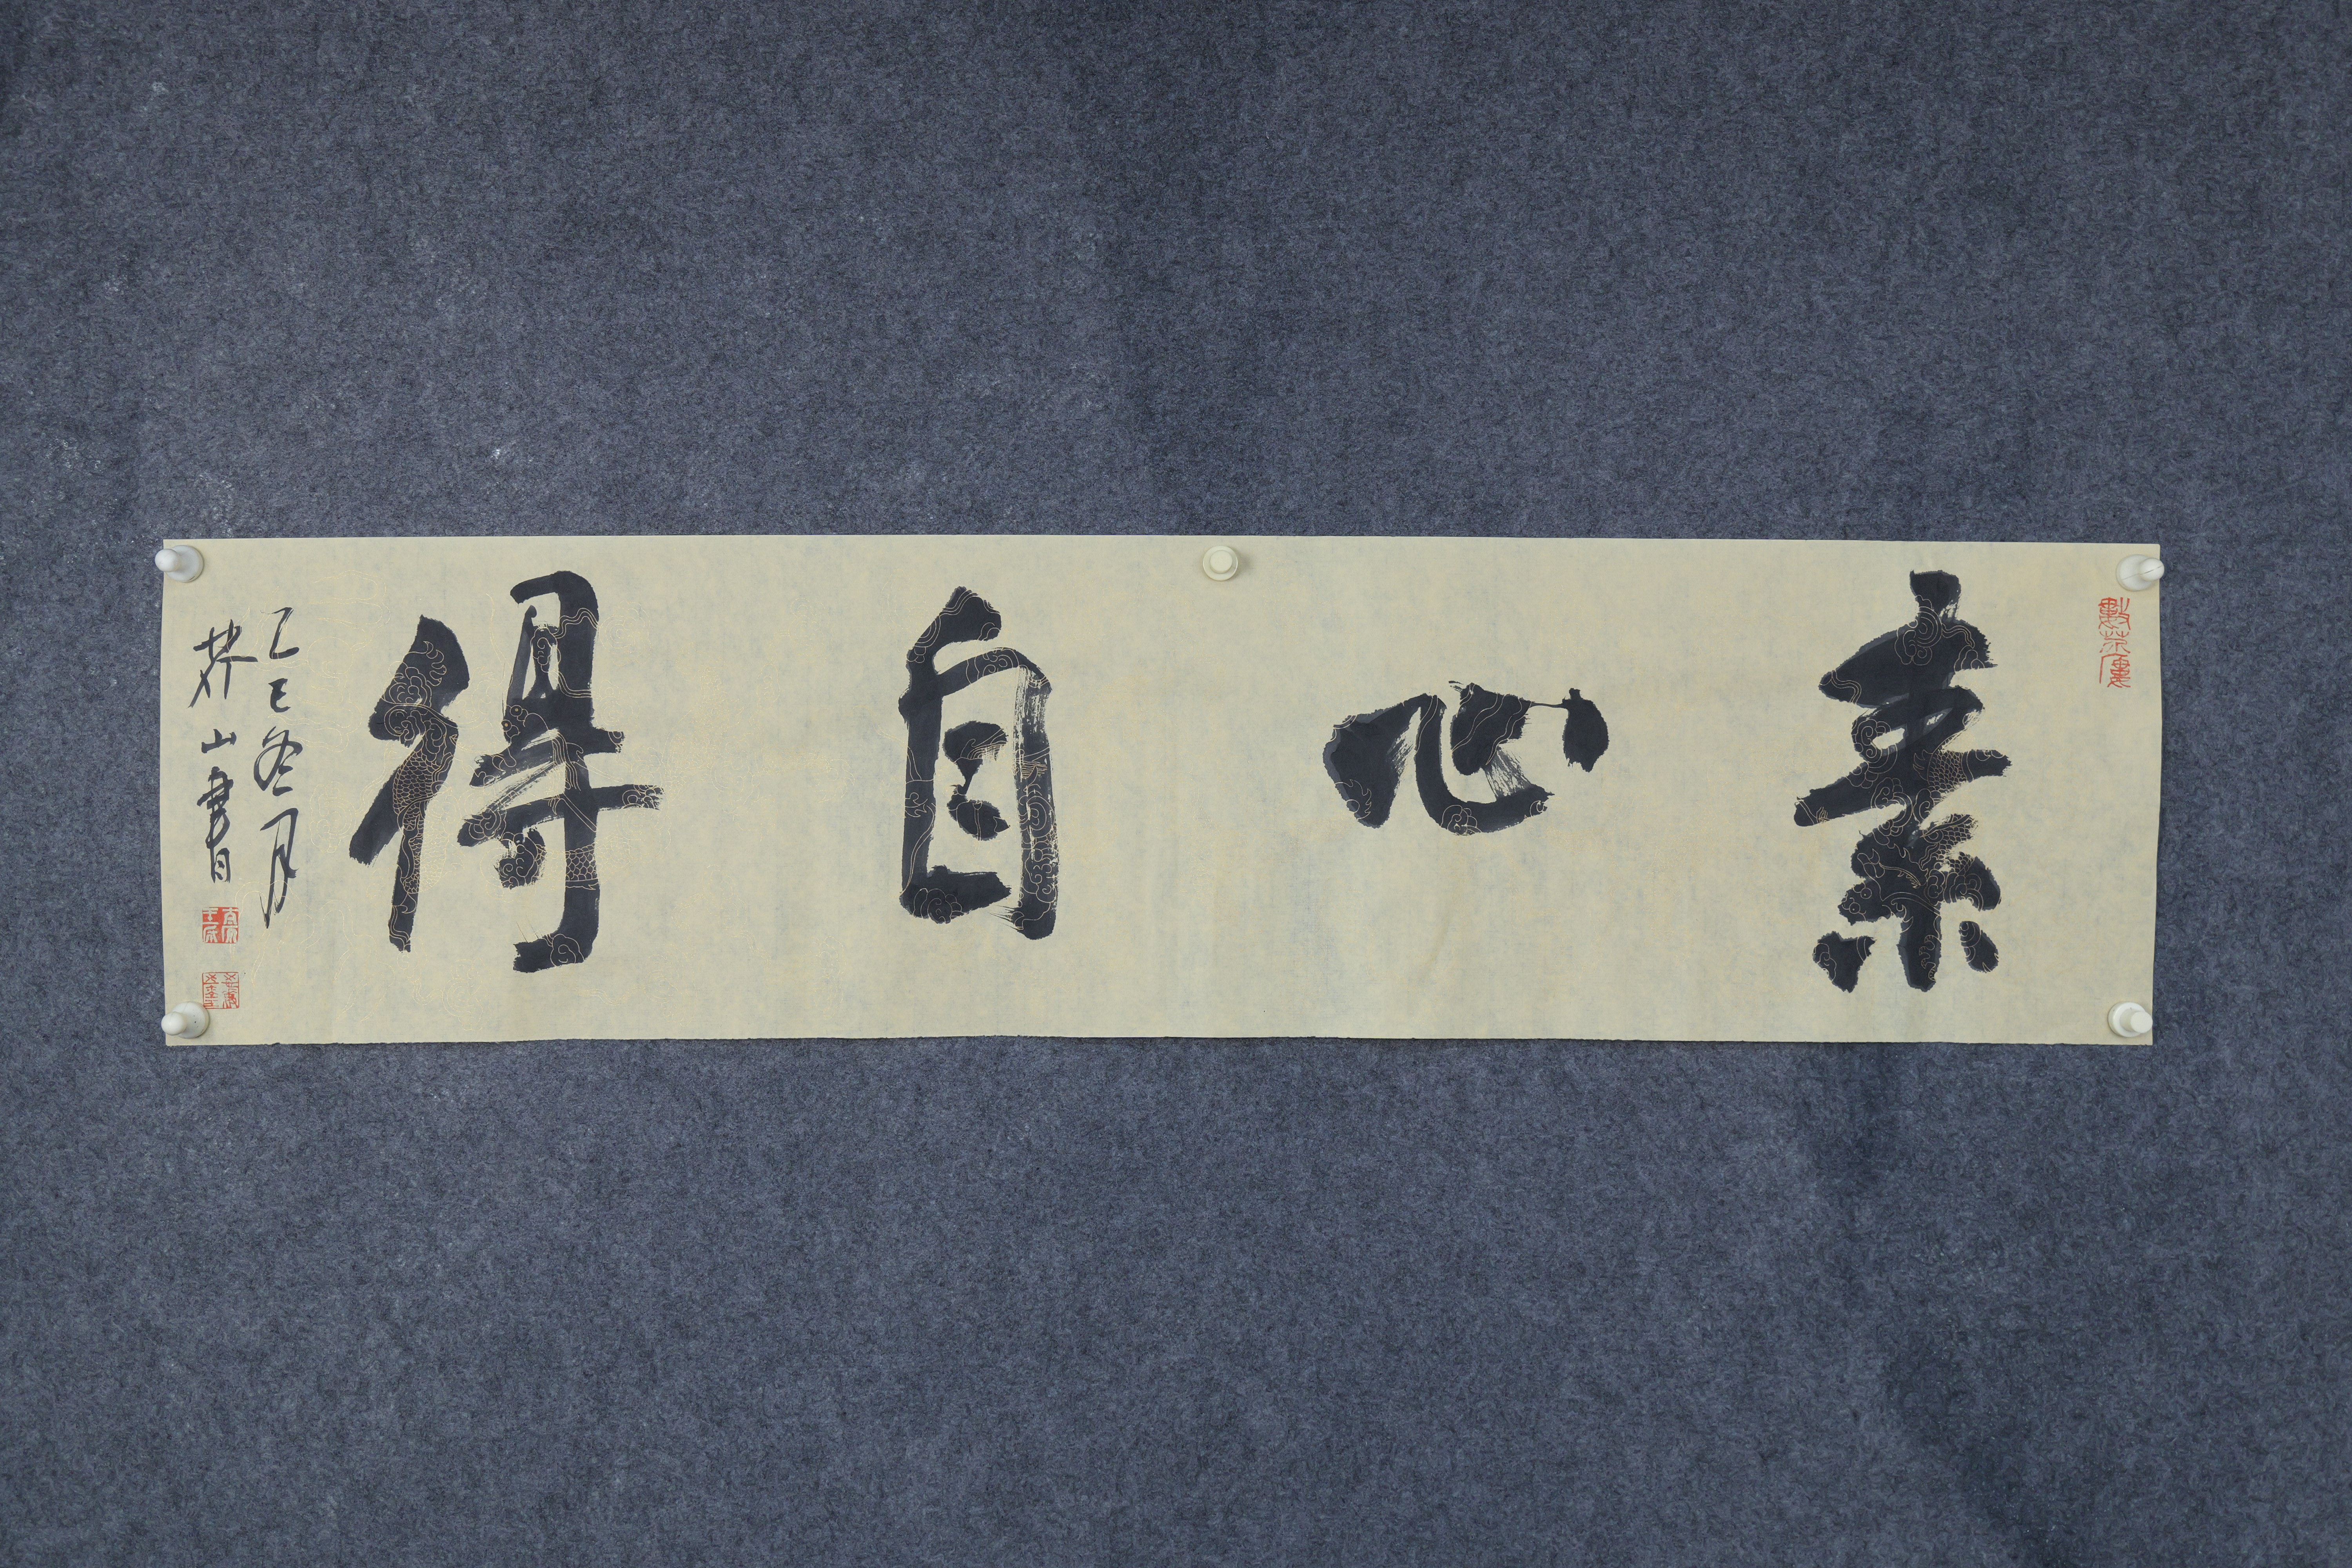 素心自得
乙巳冬月
芥山書